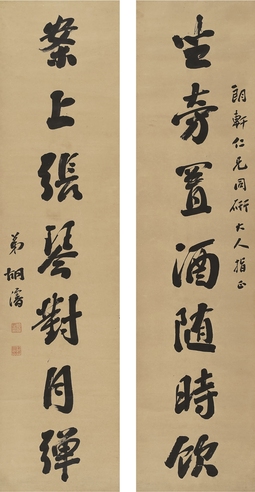 朗軒仁兄同衙大人指正
坐旁置酒随時飲
案上張琴對月彈
弟胡濤